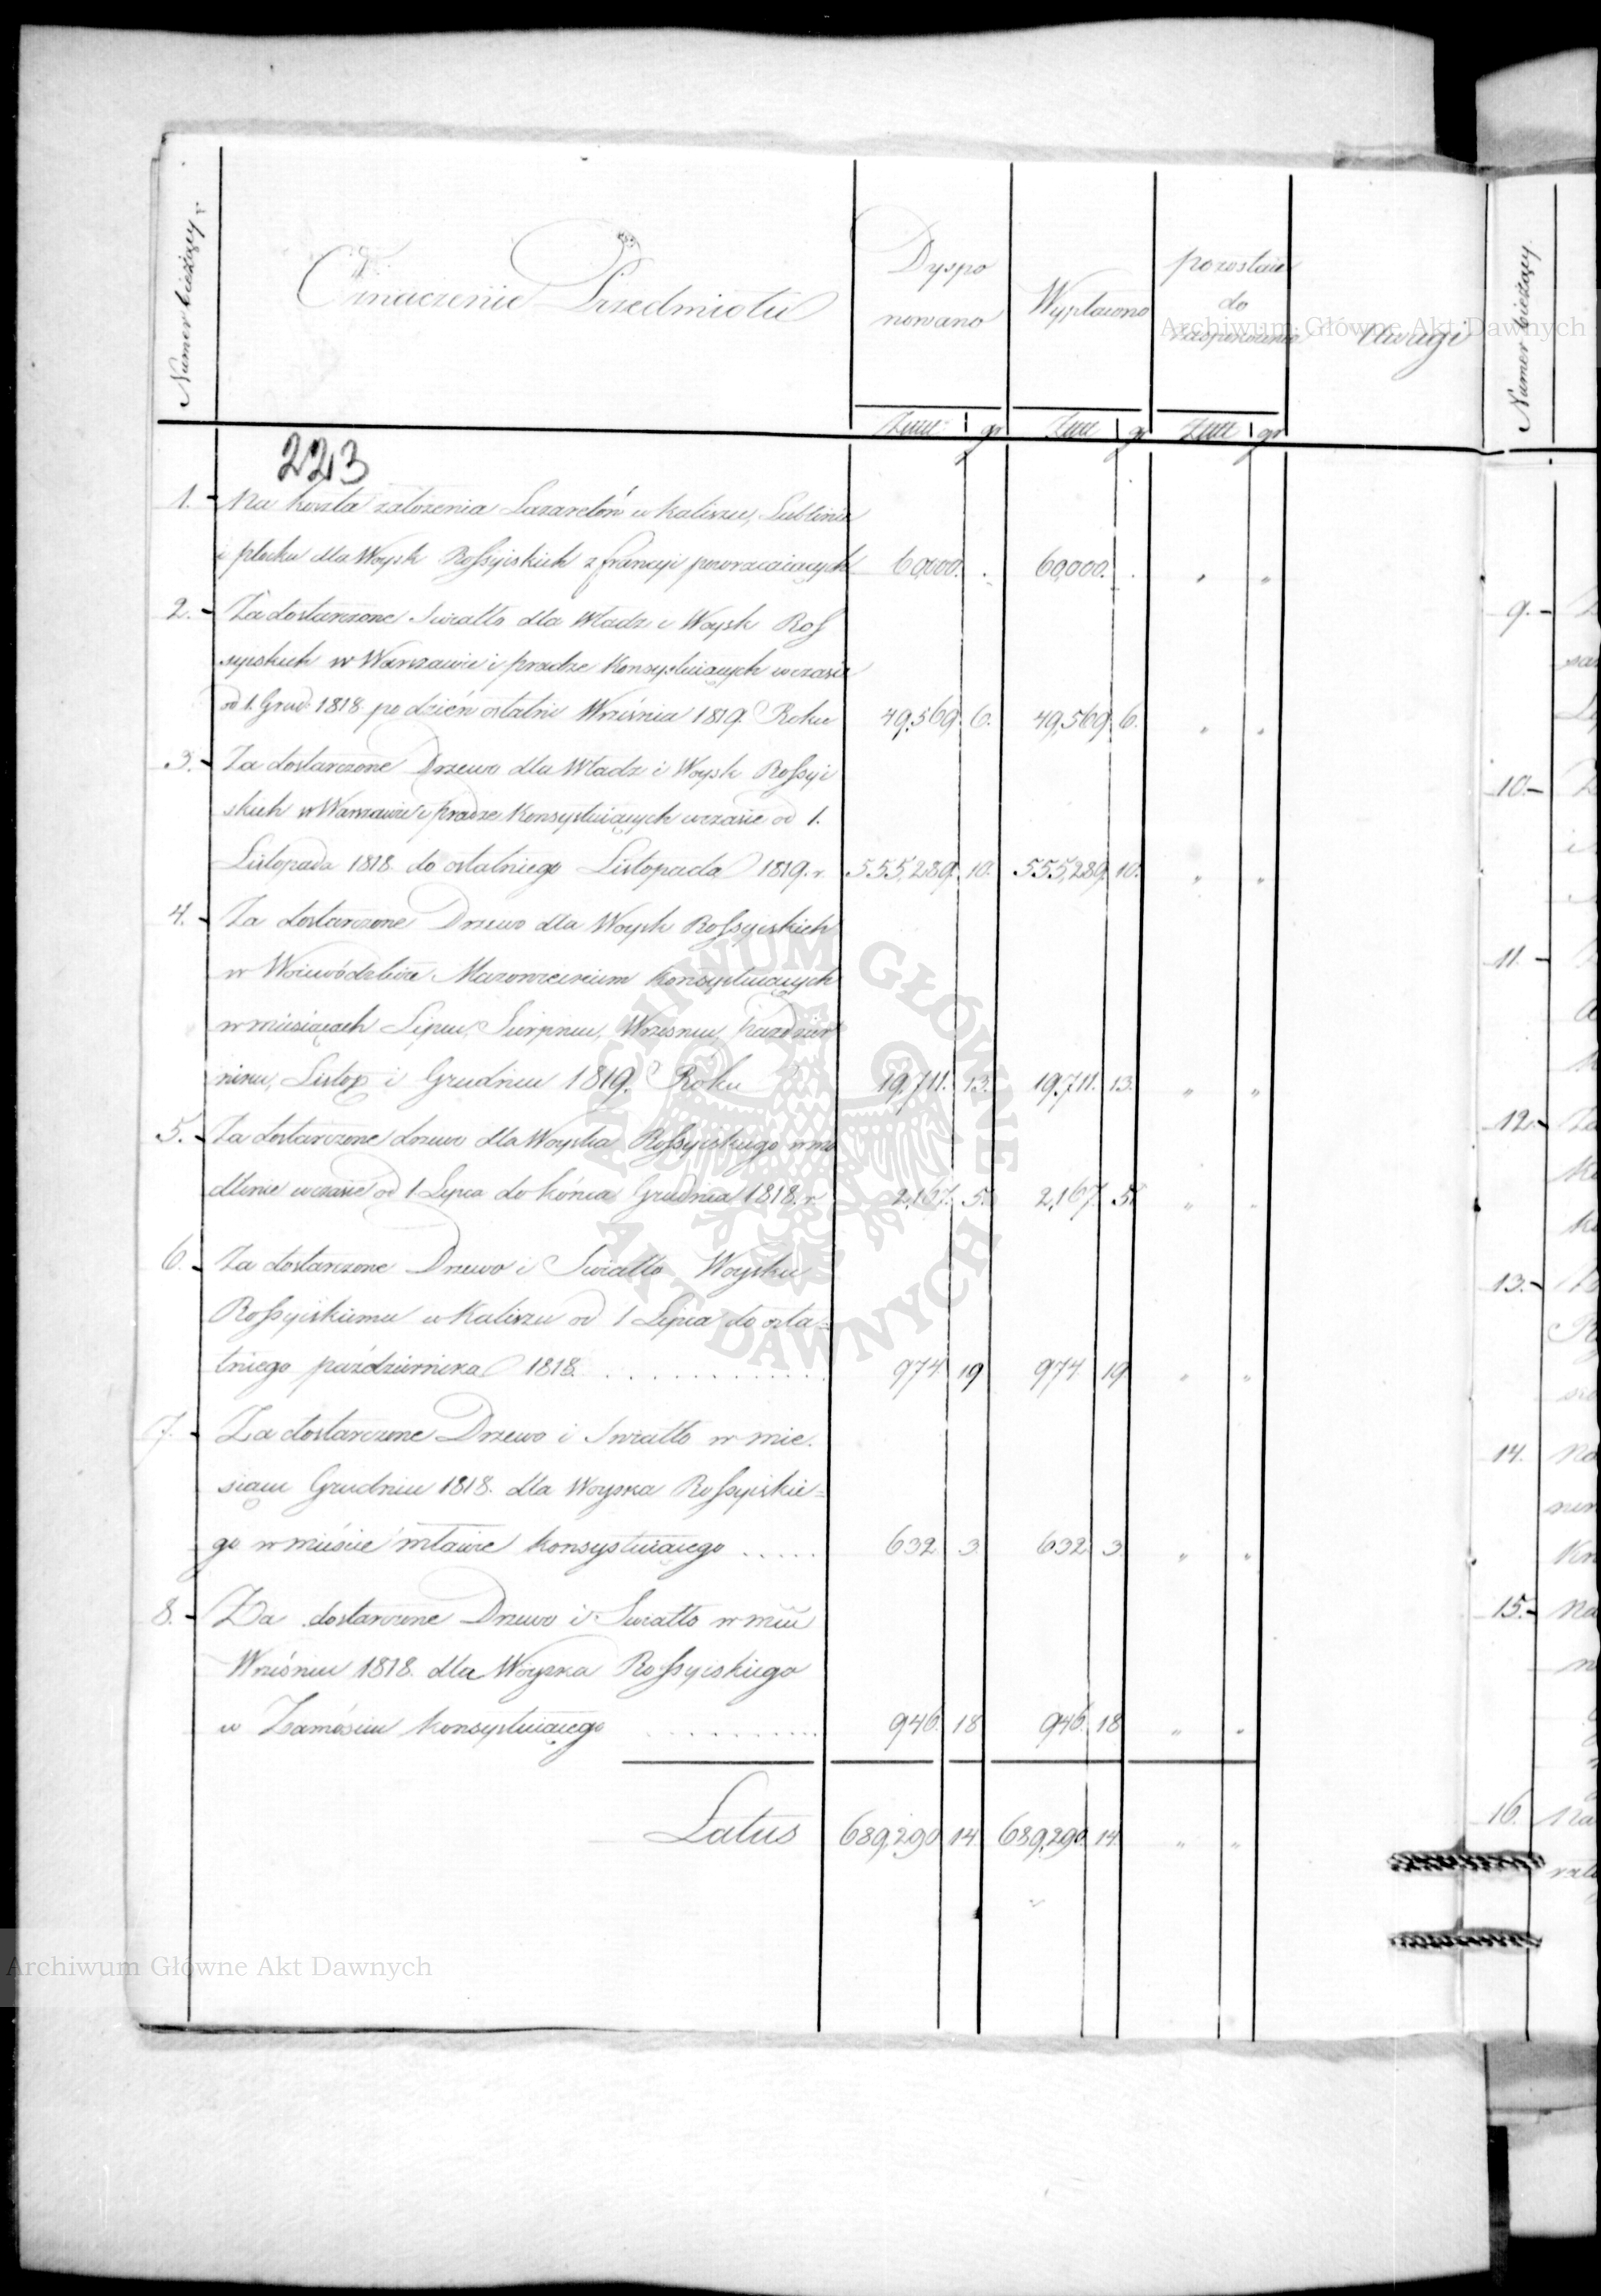 Numer bieżący.
Oznaczenie Przedmiotu
Dyspo
nowano
Wypłacono
pozostaie
do
zaspokoienia
Uwagi
Numer bieżący.
Złłł gr Złłł gr Złłł gr
223
1. Na koszta założenia Lazaretów w Kaliszu, Lublinie
i płocku dla Woysk Rossyiskich z francyi powracaiących 60,000. . 60,000. . " "
2. Za dostarczone Swiatło dla Władz i Woysk Ros
syiskich w Warszawie i pradze Konsystuiących w czasie
od 1. Grud: 1818 po dzień ostatni Września 1819. Roku 49,569. 6. 49,569. 6. " "
3. Za dostarczone Drzewo dla Władz i Woysk Rossyi
skich w Warszawie i pradze Konsystuiących w czasie od 1.
Listopada 1818. do ostatniego Listopada 1819. r. 555,289. 10. 555,289. 10. " "
4. Za dostarczone Drzewo dla Woysk Rossyiskich
w Woiewództwie Mazowieckiem Konsystuiących
w miesiącach Lipcu, Sierpniu, Wrzesniu, pazdzier
niku, Listop i Grudniu 1819. Roku 19,711. 13. 19,711. 13. " "
5. Za dostarczone drzewo dla Woyska Rossyiskiego w mo
dlinie w czasie od 1 Lipca do końca Grudnia 1818. r. 2,167. 5. 2,167. 5. " "
6. Za dostarczone Drzewo i Swiatło Woysku
Rossyiskiemu w Kaliszu od 1 Lipca do osta=
tniego października 1818. . . . . . . . . . . . 974 19 974 19 " "
7. Za dostarczone Drzewo i Swiatło w mie.
siącu Grudniu 1818. dla Woyska Rossyiskie=
go w mieście mławie Konsystuiącego . . . . . 632 3. 632 3. " "
8. Za dostarczone Drzewo i Swiatło w mcu
Wrześniu 1818. dla Woyska Rossyiskiego
w Zamościu Konsystuiącego . . . . . . . . . 946. 18 946. 18 " "
Latus 689,290 14 689,290. 14 " "
9.
10.
11.
12.
13.
14.
15.
16.
Archiwum Główne Akt Dawnych
ARCHIWUM GŁÓWNE AKT DAWNYCH
Archiwum Główne Akt Dawnych